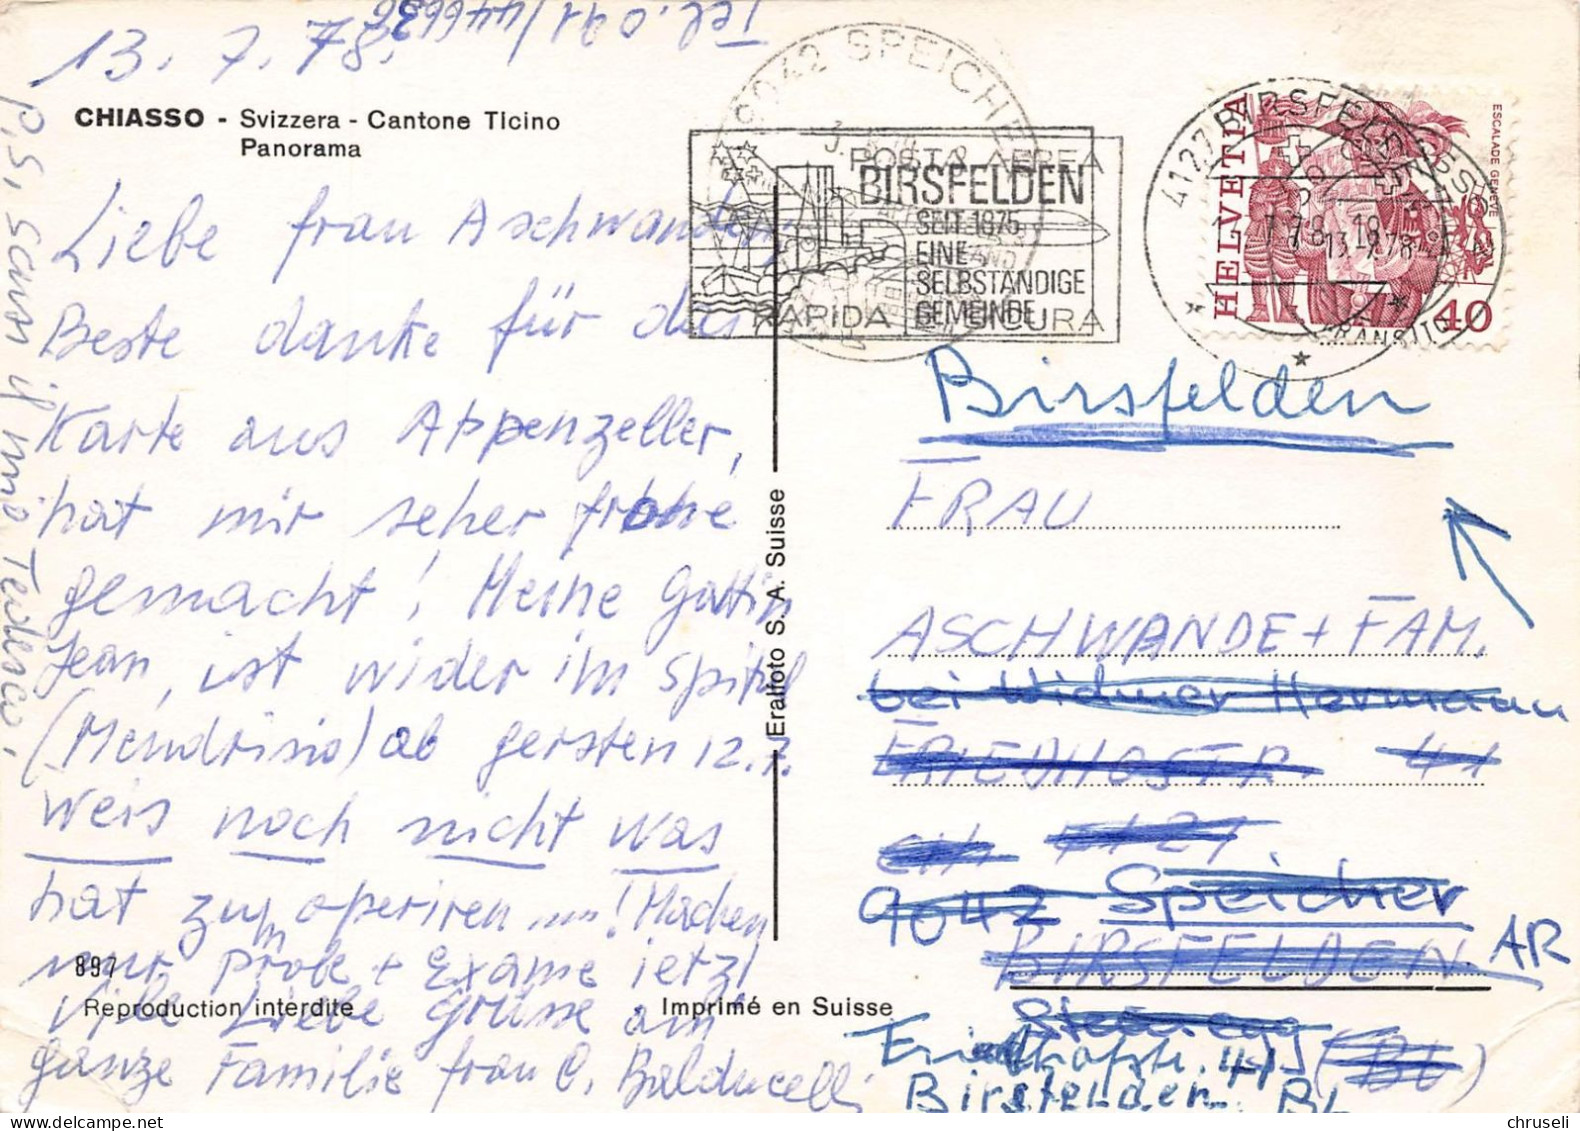 Tel. 091/446636
13.7.78.
CHIASSO - Svizzera - Cantone Ticino
Panorama
Liebe frau Aschwanden,
Beste danke für die
Karte aus Appenzeller,
hat mir seher frohe
gemacht! Meine Gattin
Jean, ist wider im Spital
(Mendrisio) ab gersten 12.7.
weis noch nicht was
hat zum operiren ...! Machen
nur probe + Exame ietz!
Viele Liebe Grüsse an
ganze Familie frau C. Balducelli
P.S. scusi il mio Tedesco.
897
Reproduction interdite
Imprimé en Suisse
Eralfoto S. A. Suisse
9042 SPEICHER
POSTA AEREA
RAPIDA E SICURA
BIRSFELDEN
SEIT 1875
EINE
SELBSTÄNDIGE
GEMEINDE
4127 BIRSFELDEN
13.7.78
TRANSITO
HELVETIA
40
ESCALADE GENÈVE
Birsfelden
FRAU
ASCHWANDE + FAM.
bei Widmer Hermann
FRIEDHOSTR. 41
CH 4127
9042 Speicher
BIRSFELDEN AR
(BL)
Friedhofstr. 41
Birsfelden BL
chruseli